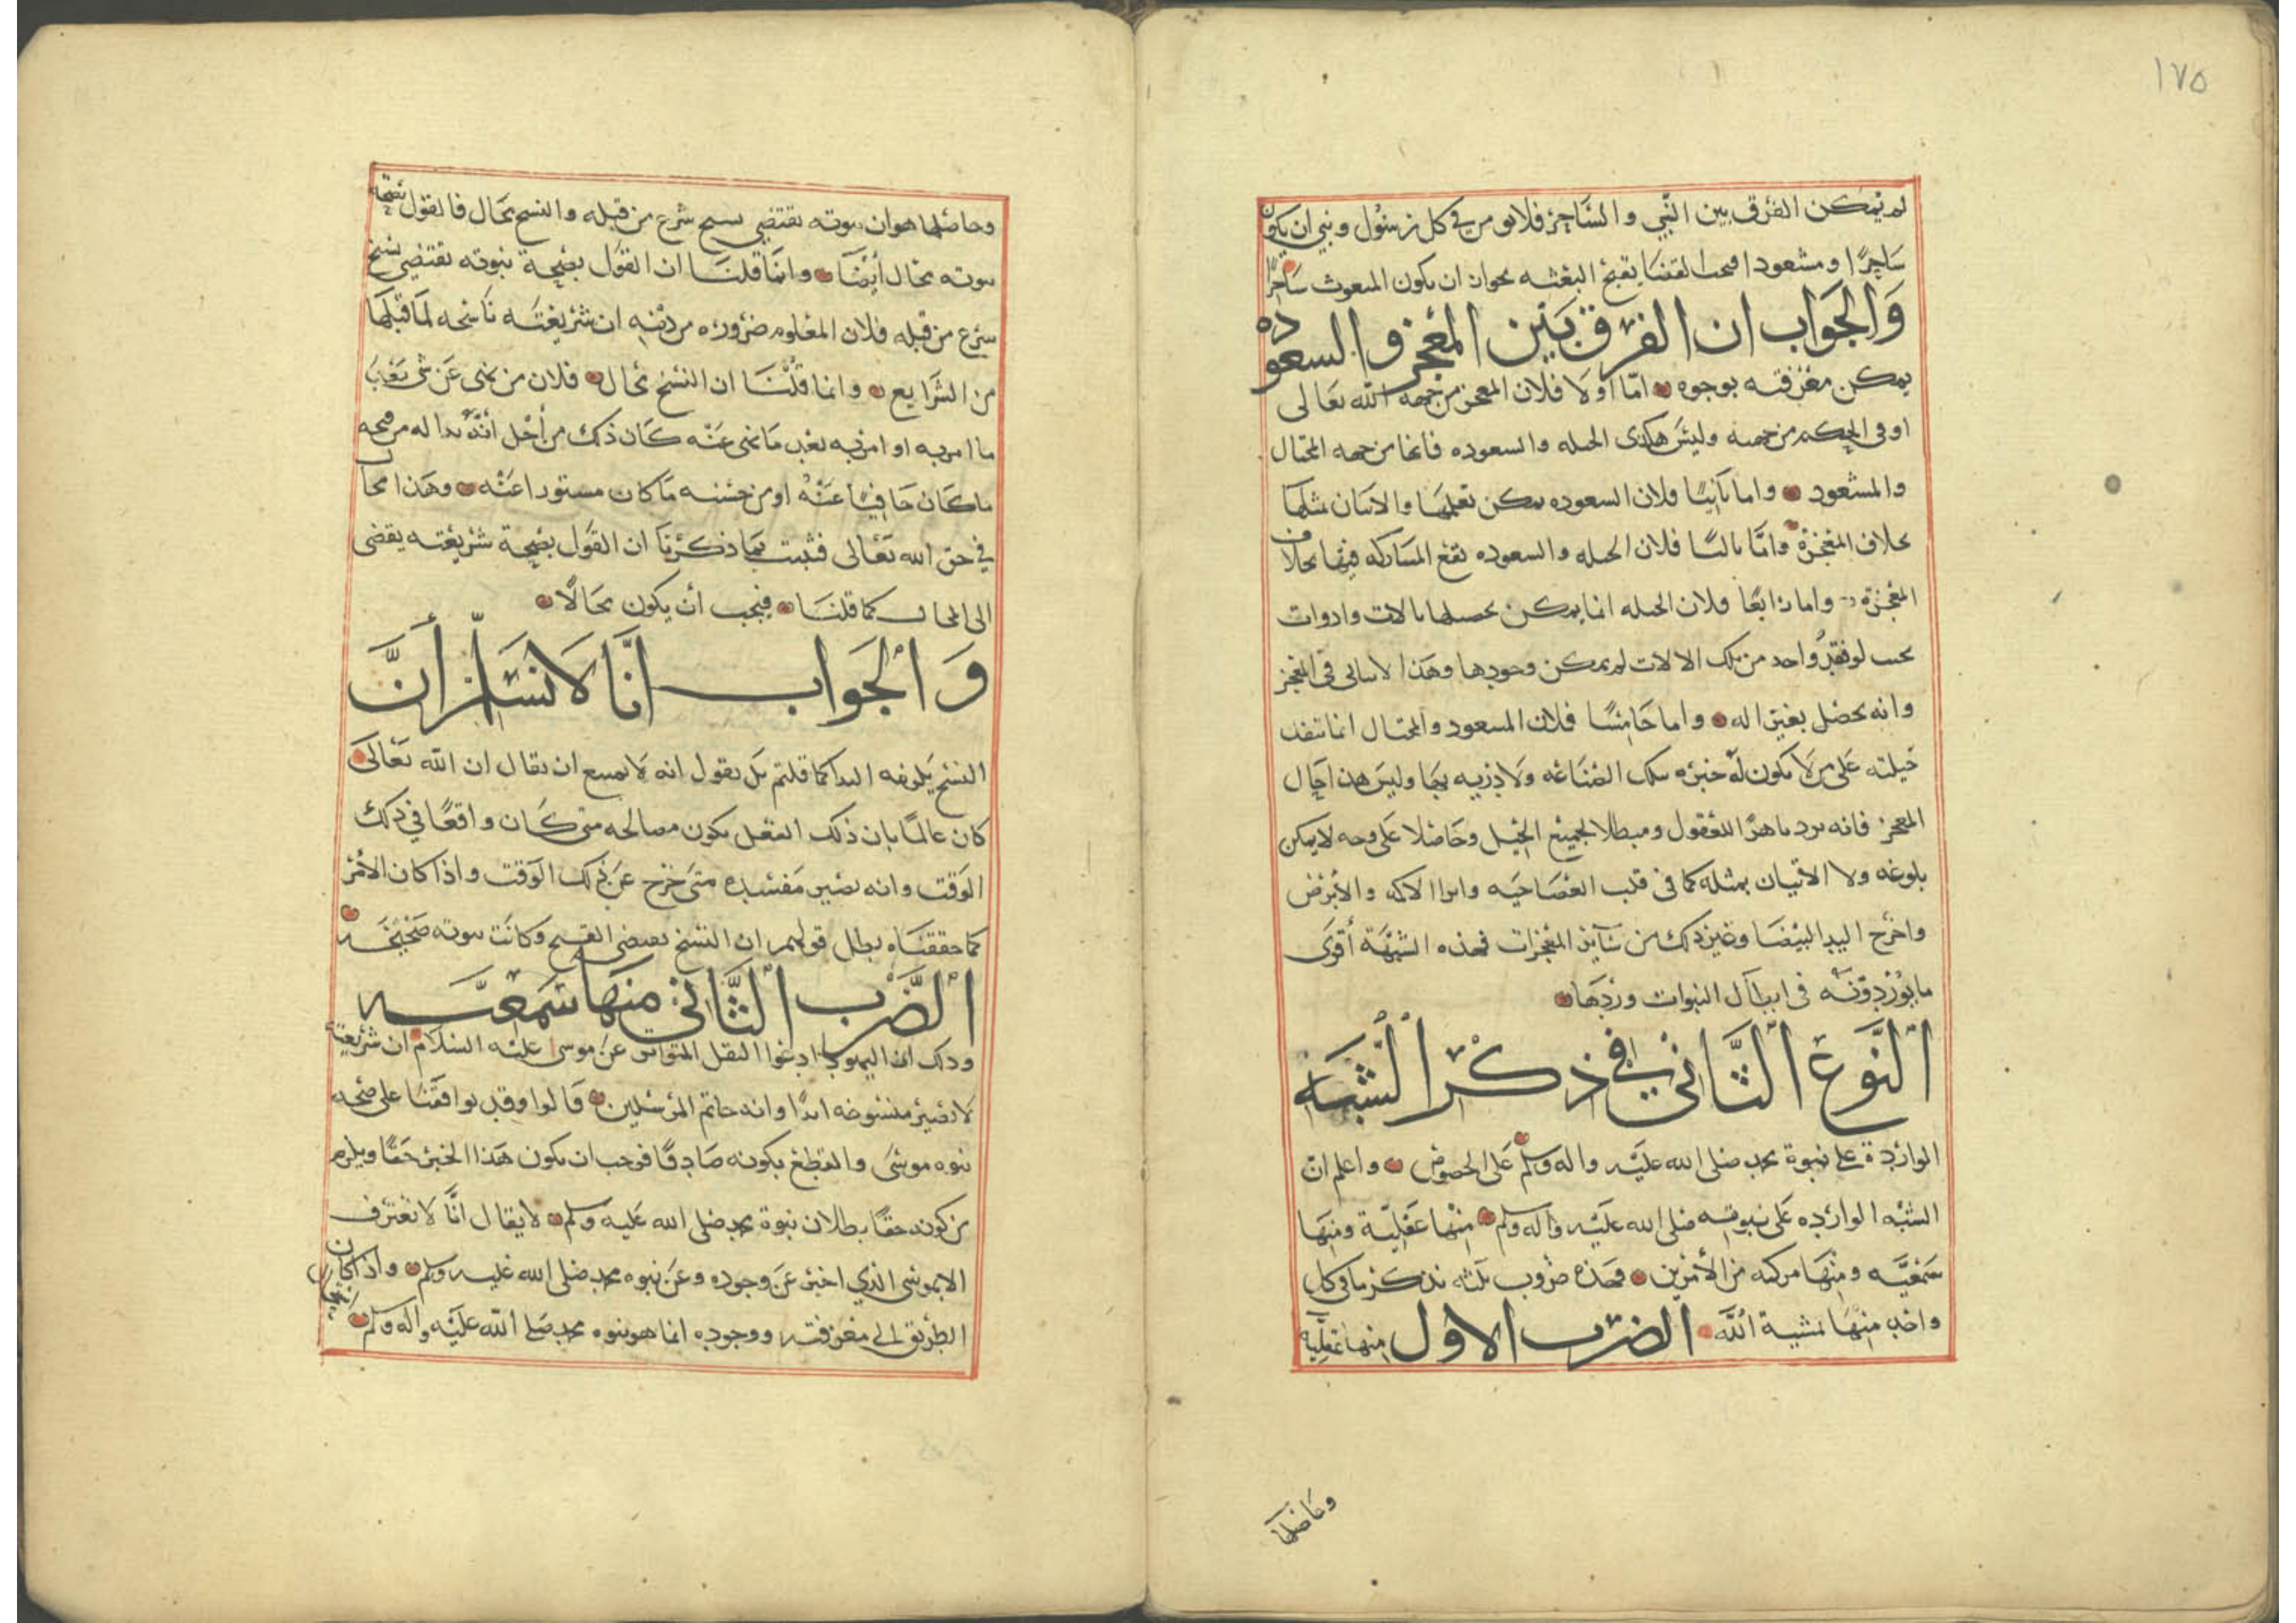 ١٧٥
لم يمكن الفرق بين النبي والساحر فلا نومن في كل رسول ونبي ان يكون
ساحرًا ومشعودا فيقبح البعثه بجواز ان يكون المبعوث ساحرًا
وَالجَوَاب ان الفرق بَيْن المعْجز والسعوده
يمكن معرفته بوجوه امّا اولا فلان المعجز من جهة الله تعَالى
او في الحكم من جهته وليسَ هكذى الحيله والسعوده فانها من جهه المحتال
والمشعود واما ثانيًا فلان السعوده يمكن تعلمهَا والاتيان بمثلهَا
بخلاف المعْجزة وامَّا ثالثًا فلان الحيله والسعوده تقع المشاركه فيها بخلاف
المعْجزة واما رابعًا فلان الحيله انما يمكن تحصيلها بالات وادوات
بحيث لو فقد واحد من تلك الالات لم يمكن وجودها وهَذا لا يتاتى في المعْجز
وانه يحصل بغير اله واما خامسًا فلان المسعود والمحتال انما تنفذ
حيلته عَلى من لا يكون لهُ خبره بتلك الصنَاعه ولا دربه بهَا وليس هذا حَال
المعجز فانه يرد باهرًا للعقول ومبطلا لجميع الحِيَل وحَاصلا عَلى وجه لا يمكن
بلوغه ولا الاتيان بمثله كما في قلب العصَا حَيه وابرا الاكمه والأبرص
واخرَج اليد البيْضَا وغير ذلك من سَآئر المعْجزات فهذه الشبْهَة أقوَى
مَا يُوْرِدوْنَه في ابطَال النبوات وردِهَا
اَلنَّوعُ الثَّانيْ فيْ ذكْر الشُّبَه
الوارْدة علي نبوة محمد صلى الله عليْه واله وسلم عَلى الخصوص واعلم ان
الشبْه الوارْده عَلى نبوته صَلى الله عَليْه وآله وسلم منْها عَقليّة ومنهَا
سَمْعيَّه ومنْهَا مركبه من الأمْرين فهَذه ضروب ثلثه نذكر ما في كل
واحد منْهَا بمشية اللّه الضرب الاول منها عقليّة
وحَاصلها
وحاصلها هو ان نبوته تقتضي نسخ شرع من قبله والنسخ محَال فالقول بصحة
نبوته محَال أيضًا وانمَا قلنَا ان القول بصِحة نبوته تقتضي نسْخ
شرْع من قبله فلان المعْلوم ضروره من ديْنه ان شريعَته نَاسخه لمَا قبْلهَا
من الشرَايع وانما قُلْنَا ان النسْخ محَال فلان من نهى عَن شي بَعْدَ
ما امر به او امر به بعْد مَا نهى عَنْه كَان ذلك من أجْل انَّهُ بدا له من قبحه
ما كَان خَافيًا عَنْهُ او من حسْنه مَا كان مستورا عَنْه وهَذا محال
في حق الله تعَالى فثبت بمَا ذكرْنَا ان القول بصحة شريعْته يفضي
الى المحال كمَا قلنَا فيجب أن يكون محَالًا
وَالجَوَاب انَّا لَا نُسَلِّم أَنَّ
النسْخ يَلزمه البدا كما قلتم بَل نقول انه لا يمتنع ان يقال ان الله تعَالى
كان عَالمًا بان ذلك الفعْل يكون مصَالحه متى كَان واقعًا في ذلك
الوَقت وانه يصَير مَفسدةً متى خرَج عَن ذَلك الوَقت واذا كان الأمْر
كما حققنَاه بطل قولهم ان النسْخ يفضي القبيح وكانَت نبوته صَحيْحَه
اَلضَّرب الثَّاني منهَا سَمْعيَّه
وذلك ان اليهود ادعَوا النقل المتواتر عَن موسى عليْه السلام ان شريعته
لا تصيْر منسُوخه ابدًا وانه خاتم المرْسَلين قالوا وقد توافقنَا على صحة
نبوه موسَى والقطع بكونه صَادقًا فوجب ان يكون هَذا الخبْر حَقًا ويلزم
من كونه حقًا بطلان نبوة محمد صَلى الله عَليه وسلم لا يقال انَّا لا نعْترف
الا بموسَى الذي اخبْر عَن وجوده وعَن نبوه محمد صَلى الله عَليه وسلم واذا كان
الطريق الى معْرفته ووجوده انما هو نبوه محمد صَلى الله عَليْه واله وسلم